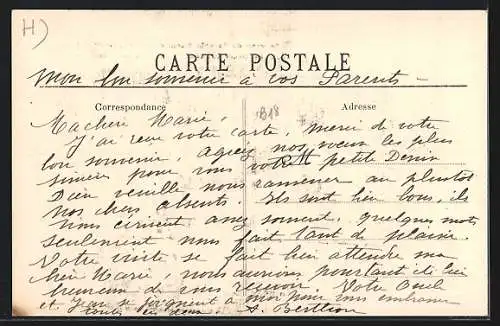 H)
CARTE POSTALE
mon bon souvenir à vos Parents -
Correspondance
Adresse
B18
Ma chère Marie,
J'ai reçu votre carte, merci de votre
bon souvenir. Agréez nos vœux les plus
sincères pour vous votre petite Denise
Dieu veuille nous ramener au plustot
nos chers absents. Ils sont bien bons, ils
nous écrivent assez souvent, quelques mots
seulement nous fait tant de plaisir.
Votre visite se fait bien attendre ma
chère Marie, nous aurions pourtant été bien
heureux de vous recevoir. Votre Oncle
et Jean se joignent à moi pour vous embrasser
toutes deux. Berthon